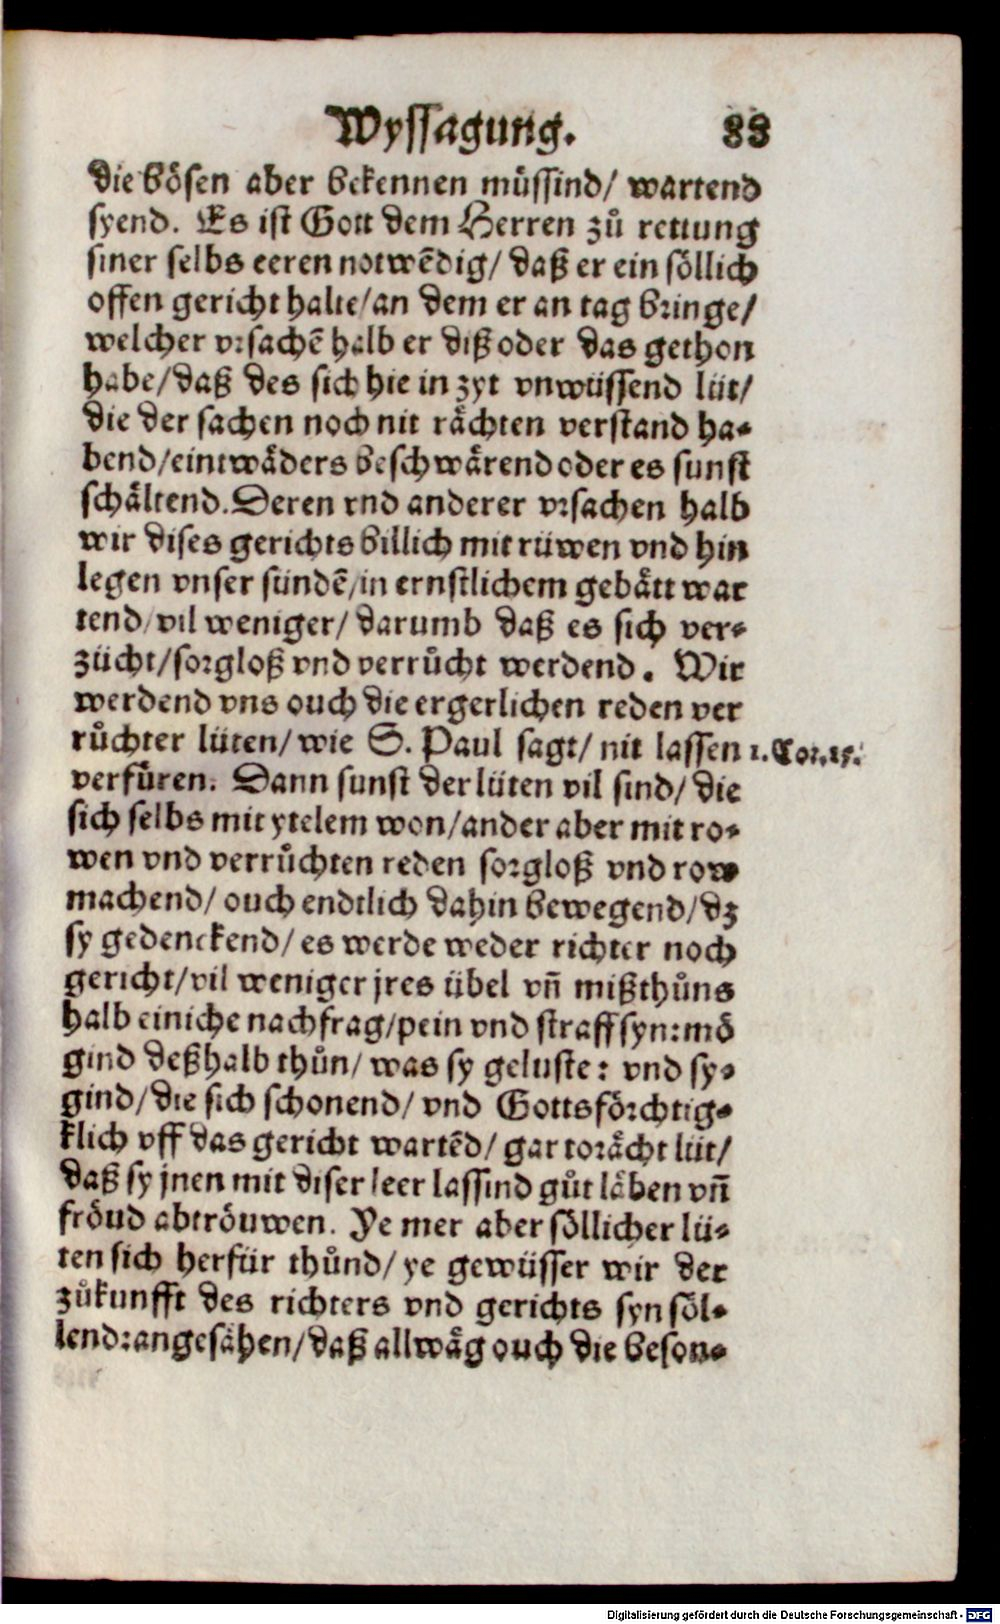 Wyssagung. 88
die bösen aber bekennen müssind/ wartend
syend. Es ist Gott dem Herren zů rettung
siner selbs eeren notwēdig/ daß er ein söllich
offen gericht halte/an dem er an tag bringe/
welcher vrsachē halb er diß oder das gethon
habe/daß des sich hie in zyt vnwüssend lüt/
die der sachen noch nit rächten verstand ha-
bend/eintwäders beschwärend oder es sunst
schältend. Deren vnd anderer vrsachen halb
wir dises gerichts billich mit rüwen vnd hin
legen vnser sündē/in ernstlichem gebätt war
tend/vil weniger/ darumb daß es sich ver-
zücht/sorgloß vnd verrůcht werdend. Wir
werdend vns ouch die ergerlichen reden ver
růchter lüten/ wie S. Paul sagt/ nit lassen 1. Cor. 15.
verfüren. Dann sunst der lüten vil sind/ die
sich selbs mit ytelem won/ander aber mit ro-
wen vnd verrůchten reden sorgloß vnd row
machend/ ouch endtlich dahin bewegend/dz
sy gedenckend/ es werde weder richter noch
gericht/vil weniger jres übel vñ mißthůns
halb einiche nachfrag/pein vnd straff syn:mö
gind deßhalb thůn/ was sy geluste: vnd sy-
gind/die sich schonend/ vnd Gottsförchtig-
klich vff das gericht wartēd/ gar torächt lüt/
daß sy jnen mit diser leer lassind gůt läben vñ
fröud abtröuwen. Ye mer aber söllicher lü-
ten sich herfür thůnd/ ye gewüsser wir der
zůkunfft des richters vnd gerichts syn söl-
lend:angesähen/daß allwäg ouch die beson-
Digitalisierung gefördert durch die Deutsche Forschungsgemeinschaft - DFG